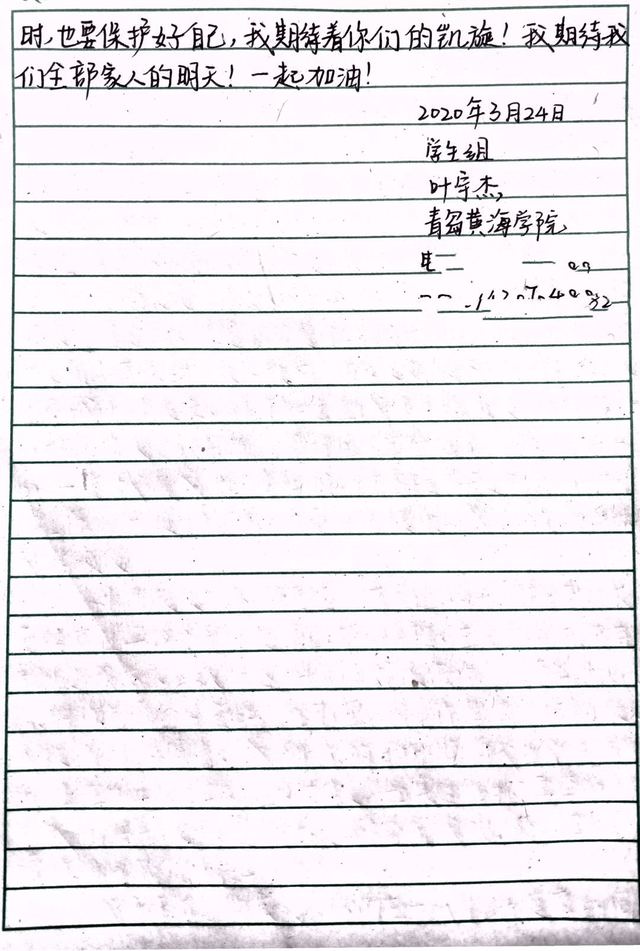 时,也要保护好自己,我期待着你们的凯旋!我期待我
们全部家人的明天!一起加油!
2020年3月24日
学生组
叶宇杰
青岛黄海学院